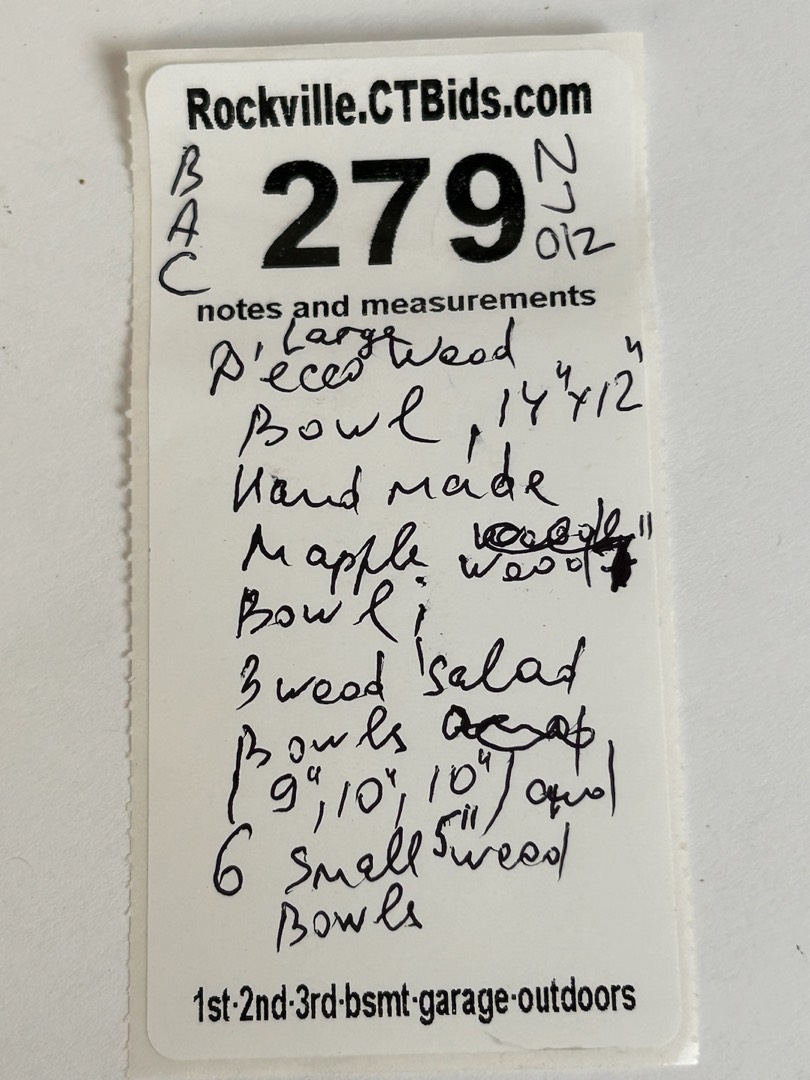 Rockville.CTBids.com
B
A
C
279
notes and measurements
Large
Wood
Bowl, 14"x12"
Hand made
Mapple wood 7"
Bowl;
3 wood salad
Bowls
(9", 10", 10") and
6 small 5" wood
Bowls
1st·2nd·3rd·bsmt·garage·outdoors